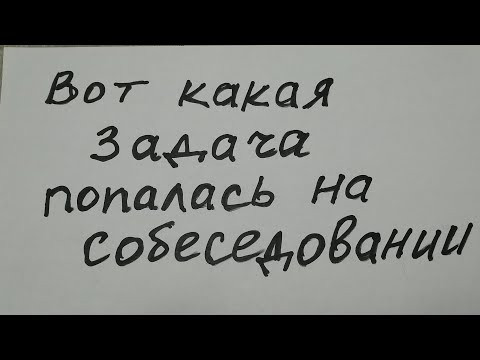 Вот какая
задача
попалась на
собеседовании